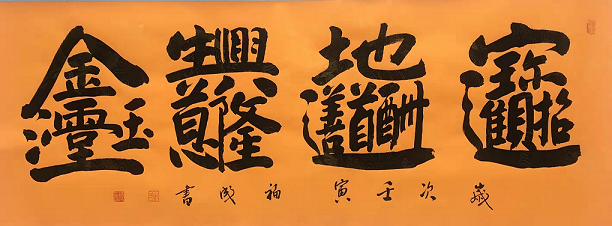 招財進寶 地道酬善 生意興隆 金玉滿堂
歲次壬寅福成書